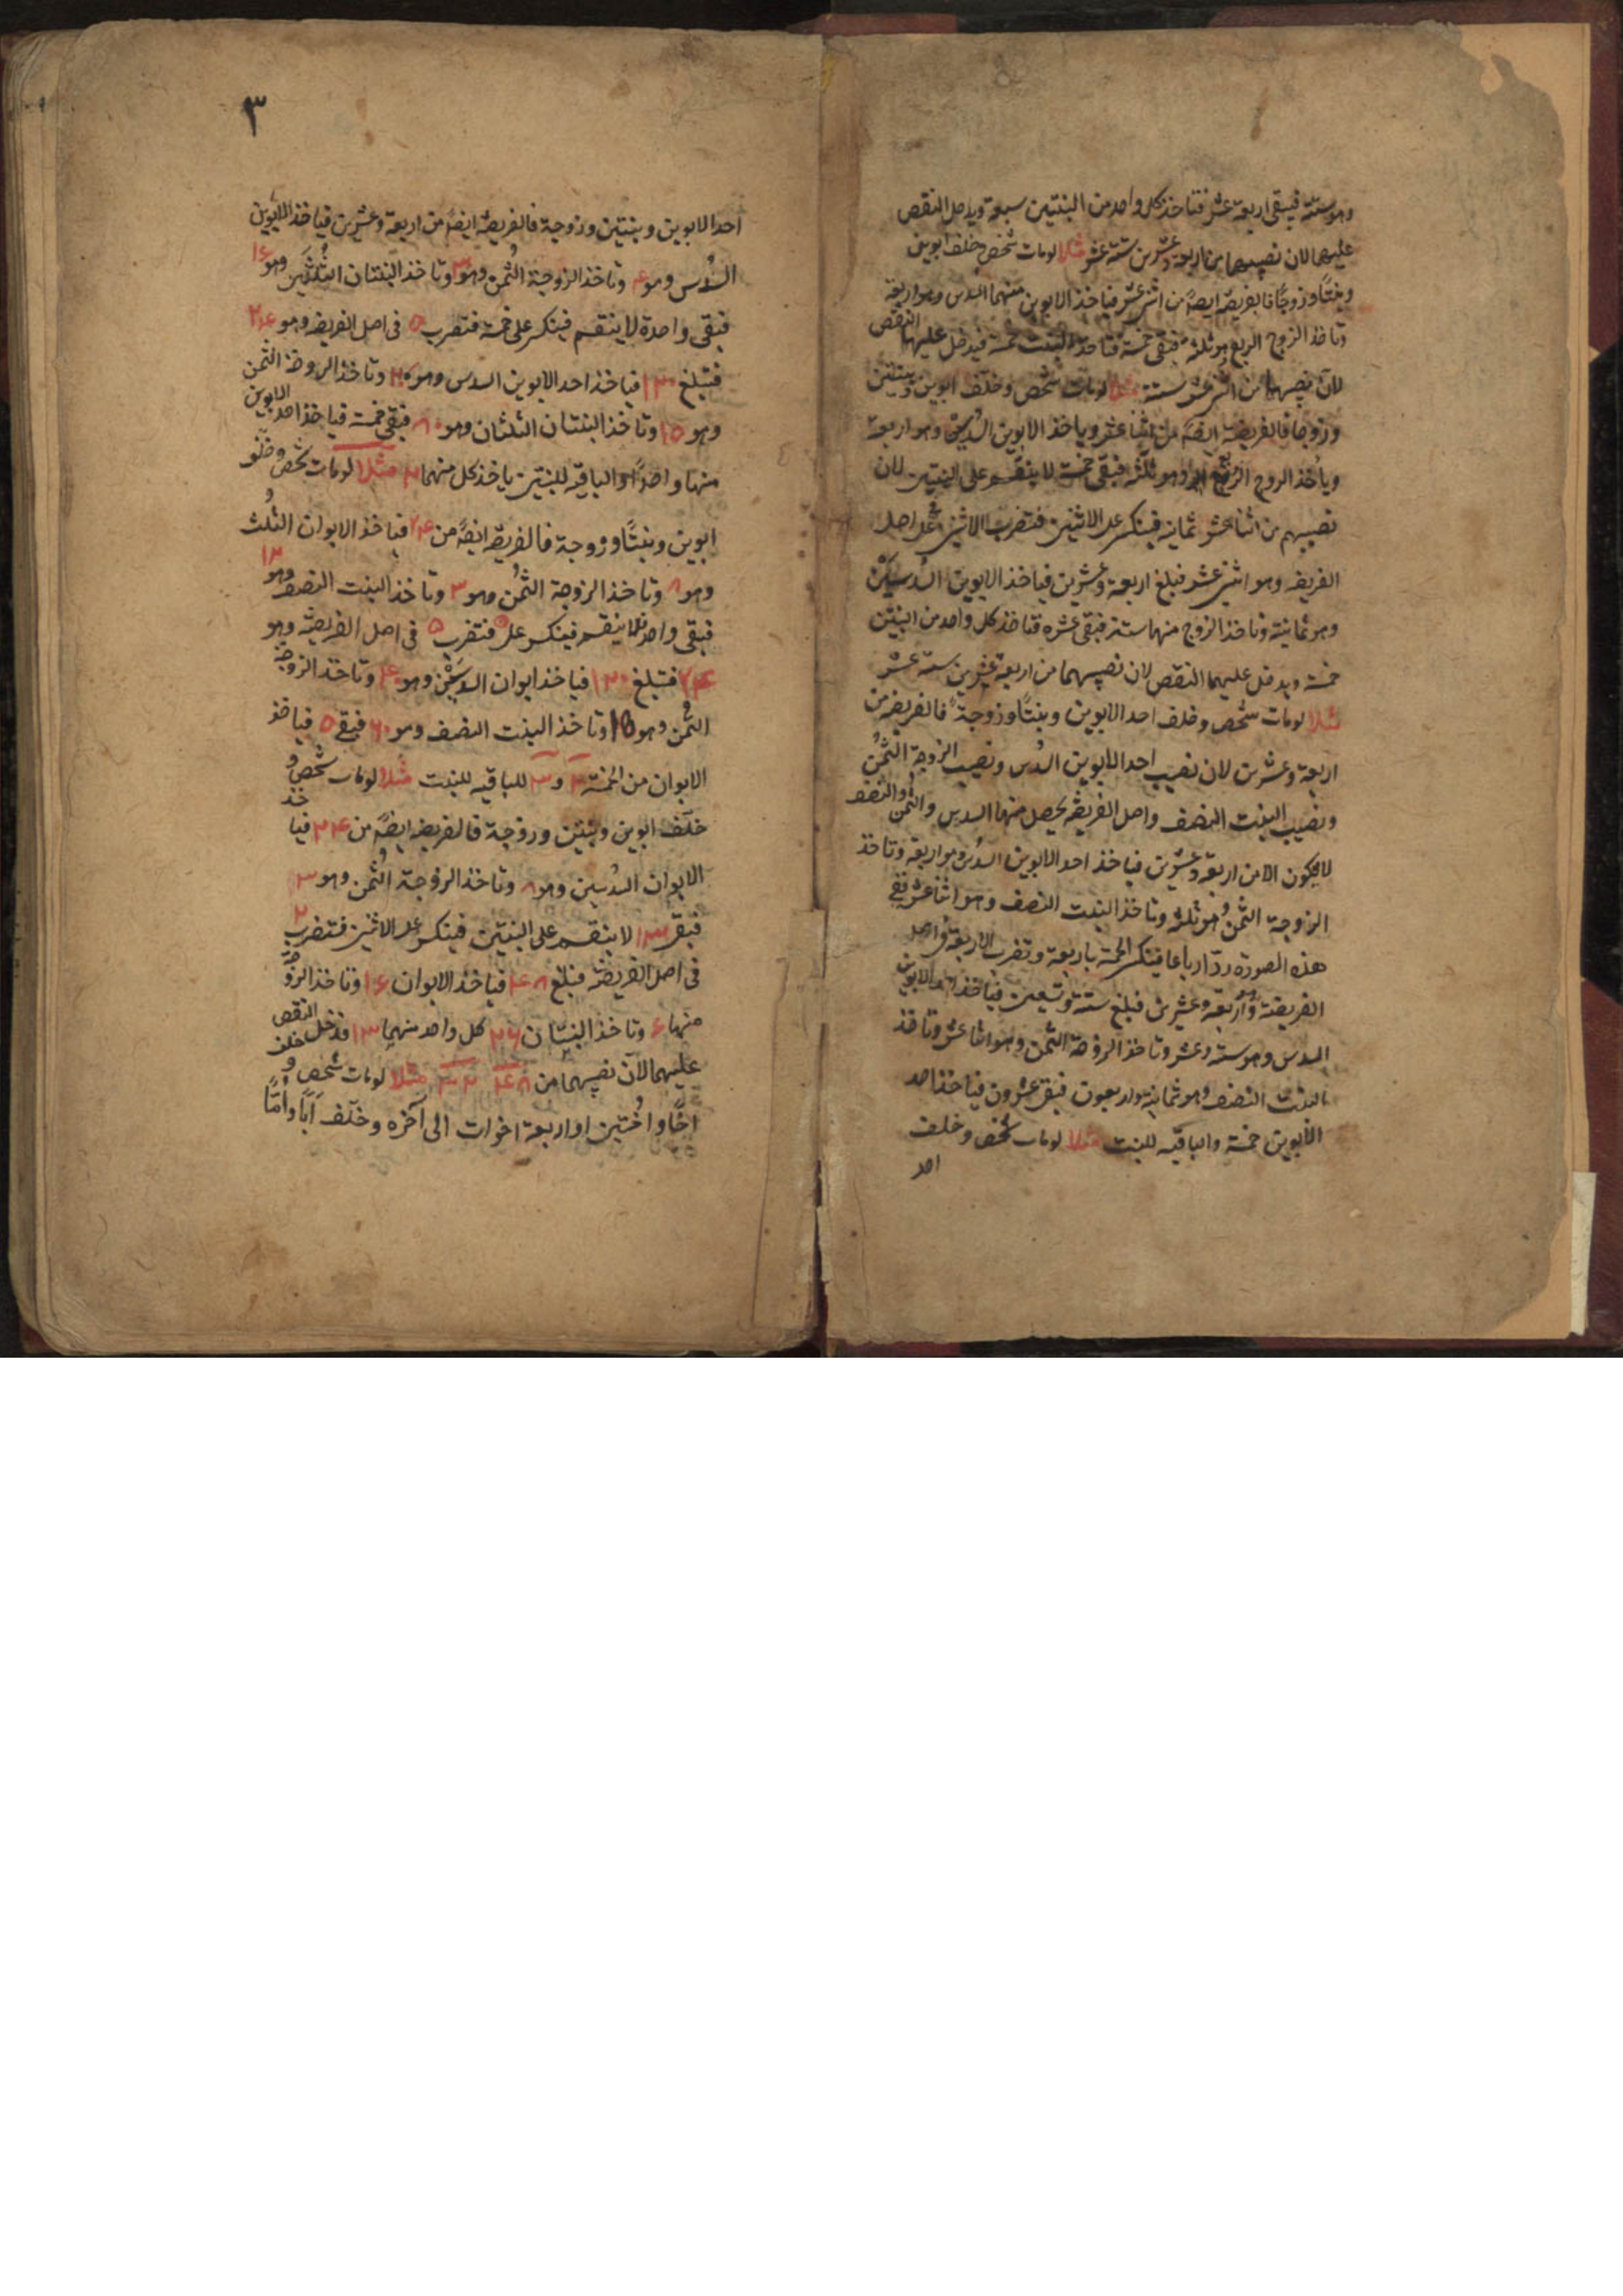 وهو ستة فيبقى اربعة عشر فتاخذ كل واحد من البنتين سبعة ويدخل النقص
عليهما لان نصيبهما من اربعة وعشرين ستة عشر مثلا لومات شخص وخلف ابوين
وبنتًا وزوجًا فالفريضة ايضًا من اثنى عشر فياخذ الابوين منهما السدس وهو اربعة
وتاخذ الزوج الربع وهو ثلثة فبقى خمسة فتاخذ البنت خمسة فيدخل عليها النقص
لان نصيبها من اثنى عشر ستة مثلا لومات شخص وخلف ابوين وبنتين
وزوجا فالفريضة ايضًا من اثنا عشر وياخذ الابوين السدسين وهو اربعة
وياخذ الزوج الربع وهو ثلثة فبقى خمسة لا ينقسم على البنتين لان
نصيبهم من اثنا عشر ثمانية فينكسر على الاثنين فتضرب الاثنين فى اصل
الفريضة وهو اثنى عشر فبلغ اربعة وعشرين فياخذ الابوين السدسين
وهو ثمانية وتاخذ الزوج منها ستة فبقى عشرة فتاخذ كل واحد من البنتين
خمسة ويدخل عليهما النقص لان نصيبهما من اربعة عشرين ستة عشر
مثلا لومات شخص وخلف احد الابوين وبنتًا وزوجة فالفريضة من
اربعة وعشرين لان نصيب احد الابوين السدس ونصيب الزوجة الثمن
ونصيب البنت النصف واصل الفريضة يحصل منها السدس والثمن والنصف
لا يكون الا من اربعة وعشرين فياخذ احد الابوين السدس وهو اربعة وتاخذ
الزوجة الثمن وهو ثلثة وتاخذ البنت النصف وهو اثنا عشر ففى
هذه الصورة رد ارباعا فينكسر الخمسة باربعة وتضرب الاربعة فى اصل
الفريضة وهو اربعة وعشرين فبلغ ستة وتسعين فياخذ احد الابوين
السدس وهو ستة وعشر وتاخذ الزوجة الثمن وهو اثنا عشر وتاخذ
البنت النصف وهو ثمانية واربعون فبقى عشرون فياخذ احد
الابوين خمسة والباقيه للبنت مثلا لومات شخص وخلف
احد
٣
احد الابوين وبنتين وزوجة فالفريضة ايضًا من اربعة وعشرين فياخذ الابوين
السدس وهو ۴ وتاخذ الزوجة الثمن وهو ٣ وتاخذ البنتان الثلثين وهو ١۶
فبقى واحدة لا ينقسم فينكسر على خمسة فتضرب ۵ فى اصل الفريضه وهو ٢۴
فتبلغ ١٢٠ فياخذ احد الابوين السدس وهو ٢٠ وتاخذ الزوجة الثمن
وهو ١۵ وتاخذ البنتان الثلثان وهو ٨٠ فبقى خمسة فياخذ احد الابوين
منها واحدًا والباقيه للبنتين ياخذ كل منهما ٢ مثلا لومات شخص وخلف
ابوين وبنتًا وزوجة فالفريضة ايضًا من ٢۴ فياخذ الابوان الثلث
وهو ٨ وتاخذ الزوجة الثمن وهو ٣ وتاخذ البنت النصف وهو ١٢
فبقى واحد فلا ينقسم فينكسر على ۵ فتضرب ۵ فى اصل الفريضة وهو
٢۴ فتبلغ ١٢٠ فياخذ ابوان السدسين وهو ۴٠ وتاخذ الزوجة
الثمن وهو ١۵ وتاخذ البنت النصف وهو ۶٠ فبقى ۵ فياخذ
الابوان من الخمسة ٢ و ٣ للباقيه للبنت مثلا لومات شخص و
خلف ابوين وبنتين وزوجة فالفريضه ايضًا من ٢۴ فياخذ
الابوان السدسين وهو ٨ وتاخذ الزوجة الثمن وهو ٣
فبقى ١٣ لا ينقسم على البنتين فينكسر على الاثنين فتضرب ٢
فى اصل الفريضة فبلغ ۴٨ فياخذ الابوان ١۶ وتاخذ الزوجة
منها ۶ وتاخذ البنتان ٢۶ كل واحد منهما ١٣ فدخل النقص
عليهما لان نصيبهما من ۴٨ ٣٢ مثلا لومات شخص وخلف
اخًا واختين او اربعة اخوات الى آخره وخلف أبًا واُمًّا